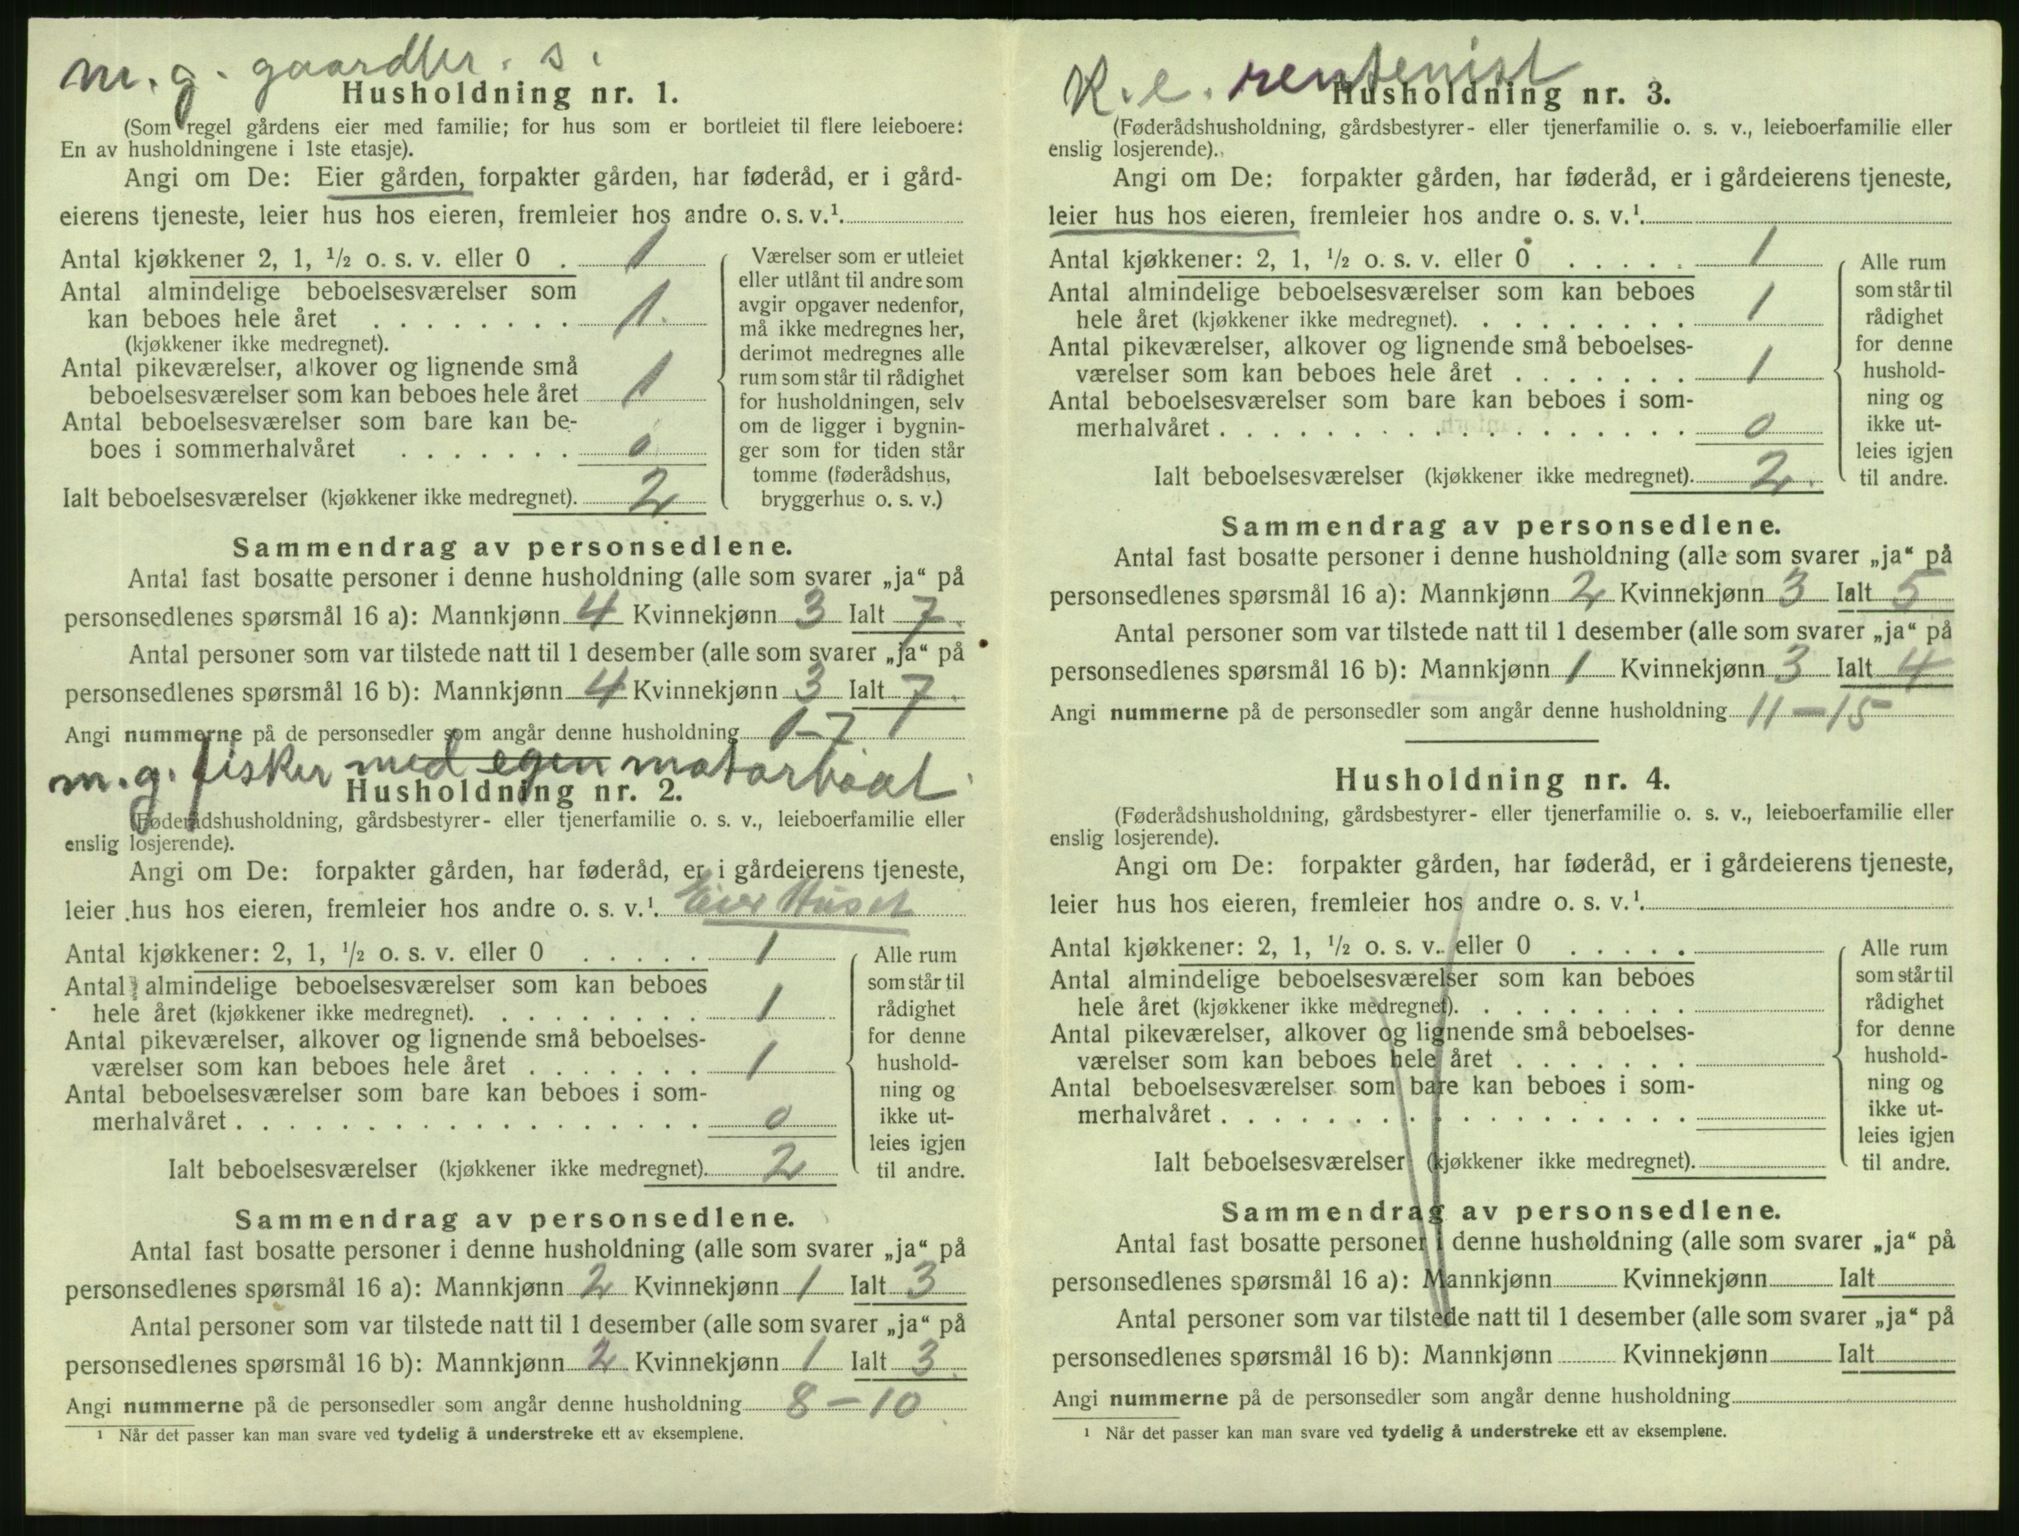 m. g. gaardbr. s.
Husholdning nr. 1.
(Som regel gårdens eier med familie; for hus som er bortleiet til flere leieboere:
En av husholdningene i 1ste etasje).
Angi om De: Eier gården, forpakter gården, har føderåd, er i gård-
eierens tjeneste, leier hus hos eieren, fremleier hos andre o. s. v.¹.
Antal kjøkkener 2, 1, ½ o. s. v. eller 0 . 1
Antal almindelige beboelsesværelser som
kan beboes hele året . . . . . . . . 1
(kjøkkener ikke medregnet).
Antal pikeværelser, alkover og lignende små
beboelsesværelser som kan beboes hele året 1
Antal beboelsesværelser som bare kan be-
boes i sommerhalvåret . . . . . . . 0
Ialt beboelsesværelser (kjøkkener ikke medregnet). 2
Værelser som er utleiet
eller utlånt til andre som
avgir opgaver nedenfor,
må ikke medregnes her,
derimot medregnes alle
rum som står til rådighet
for husholdningen, selv
om de ligger i bygnin-
ger som for tiden står
tomme (føderådshus,
bryggerhus o. s. v.)
Sammendrag av personsedlene.
Antal fast bosatte personer i denne husholdning (alle som svarer „ja“ på
personsedlenes spørsmål 16 a): Mannkjønn 4 Kvinnekjønn 3 Ialt 7.
Antal personer som var tilstede natt til 1 desember (alle som svarer „ja“ på
personsedlenes spørsmål 16 b): Mannkjønn 4 Kvinnekjønn 3 Ialt 7.
Angi nummerne på de personsedler som angår denne husholdning 1-7
m. g. fisker med egen motorbaat
Husholdning nr. 2.
(Føderådshusholdning, gårdsbestyrer- eller tjenerfamilie o. s. v., leieboerfamilie eller
enslig losjerende).
Angi om De: forpakter gården, har føderåd, er i gårdeierens tjeneste,
leier hus hos eieren, fremleier hos andre o. s. v.¹. Eier Huset
Antal kjøkkener: 2, 1, ½ o. s. v. eller 0 . . . . . 1
Antal almindelige beboelsesværelser som kan beboes
hele året (kjøkkener ikke medregnet). . . . . . . . . 1
Antal pikeværelser, alkover og lignende små beboelses-
værelser som kan beboes hele året . . . . . . . 1
Antal beboelsesværelser som bare kan beboes i som-
merhalvåret . . . . . . . . . . . . . . . . . . 0
Ialt beboelsesværelser (kjøkkener ikke medregnet). 2
Alle rum
som står til
rådighet
for denne
hushold-
ning og
ikke ut-
leies igjen
til andre.
Sammendrag av personsedlene.
Antal fast bosatte personer i denne husholdning (alle som svarer „ja“ på
personsedlenes spørsmål 16 a): Mannkjønn 2 Kvinnekjønn 1 Ialt 3
Antal personer som var tilstede natt til 1 desember (alle som svarer „ja“ på
personsedlenes spørsmål 16 b): Mannkjønn 2 Kvinnekjønn 1 Ialt 3.
Angi nummerne på de personsedler som angår denne husholdning 8-10
¹ Når det passer kan man svare ved tydelig å understreke ett av eksemplene.
K. e. rentenist
Husholdning nr. 3.
(Føderådshusholdning, gårdsbestyrer- eller tjenerfamilie o. s. v., leieboerfamilie eller
enslig losjerende).
Angi om De: forpakter gården, har føderåd, er i gårdeierens tjeneste,
leier hus hos eieren, fremleier hos andre o. s. v.¹.
Antal kjøkkener: 2, 1, ½ o. s. v. eller 0 . . . . . 1
Antal almindelige beboelsesværelser som kan beboes
hele året (kjøkkener ikke medregnet). . . . . . . . . 1
Antal pikeværelser, alkover og lignende små beboelses-
værelser som kan beboes hele året . . . . . . . 1
Antal beboelsesværelser som bare kan beboes i som-
merhalvåret . . . . . . . . . . . . . . . . . . 0
Ialt beboelsesværelser (kjøkkener ikke medregnet). 2.
Alle rum
som står til
rådighet
for denne
hushold-
ning og
ikke ut-
leies igjen
til andre.
Sammendrag av personsedlene.
Antal fast bosatte personer i denne husholdning (alle som svarer „ja“ på
personsedlenes spørsmål 16 a): Mannkjønn 2 Kvinnekjønn 3 Ialt 5
Antal personer som var tilstede natt til 1 desember (alle som svarer „ja“ på
personsedlenes spørsmål 16 b): Mannkjønn 1 Kvinnekjønn 3 Ialt 4
Angi nummerne på de personsedler som angår denne husholdning 11-15
Husholdning nr. 4.
(Føderådshusholdning, gårdsbestyrer- eller tjenerfamilie o. s. v., leieboerfamilie eller
enslig losjerende).
Angi om De: forpakter gården, har føderåd, er i gårdeierens tjeneste,
leier hus hos eieren, fremleier hos andre o. s. v.¹.
Antal kjøkkener: 2, 1, ½ o. s. v. eller 0 . . . . .
Antal almindelige beboelsesværelser som kan beboes
hele året (kjøkkener ikke medregnet). . . . . . . . .
Antal pikeværelser, alkover og lignende små beboelses-
værelser som kan beboes hele året . . . . . . .
Antal beboelsesværelser som bare kan beboes i som-
merhalvåret . . . . . . . . . . . . . . . . . .
Ialt beboelsesværelser (kjøkkener ikke medregnet).
Alle rum
som står til
rådighet
for denne
hushold-
ning og
ikke ut-
leies igjen
til andre.
Sammendrag av personsedlene.
Antal fast bosatte personer i denne husholdning (alle som svarer „ja“ på
personsedlenes spørsmål 16 a): Mannkjønn Kvinnekjønn Ialt
Antal personer som var tilstede natt til 1 desember (alle som svarer „ja“ på
personsedlenes spørsmål 16 b): Mannkjønn Kvinnekjønn Ialt
Angi nummerne på de personsedler som angår denne husholdning
¹ Når det passer kan man svare ved tydelig å understreke ett av eksemplene.